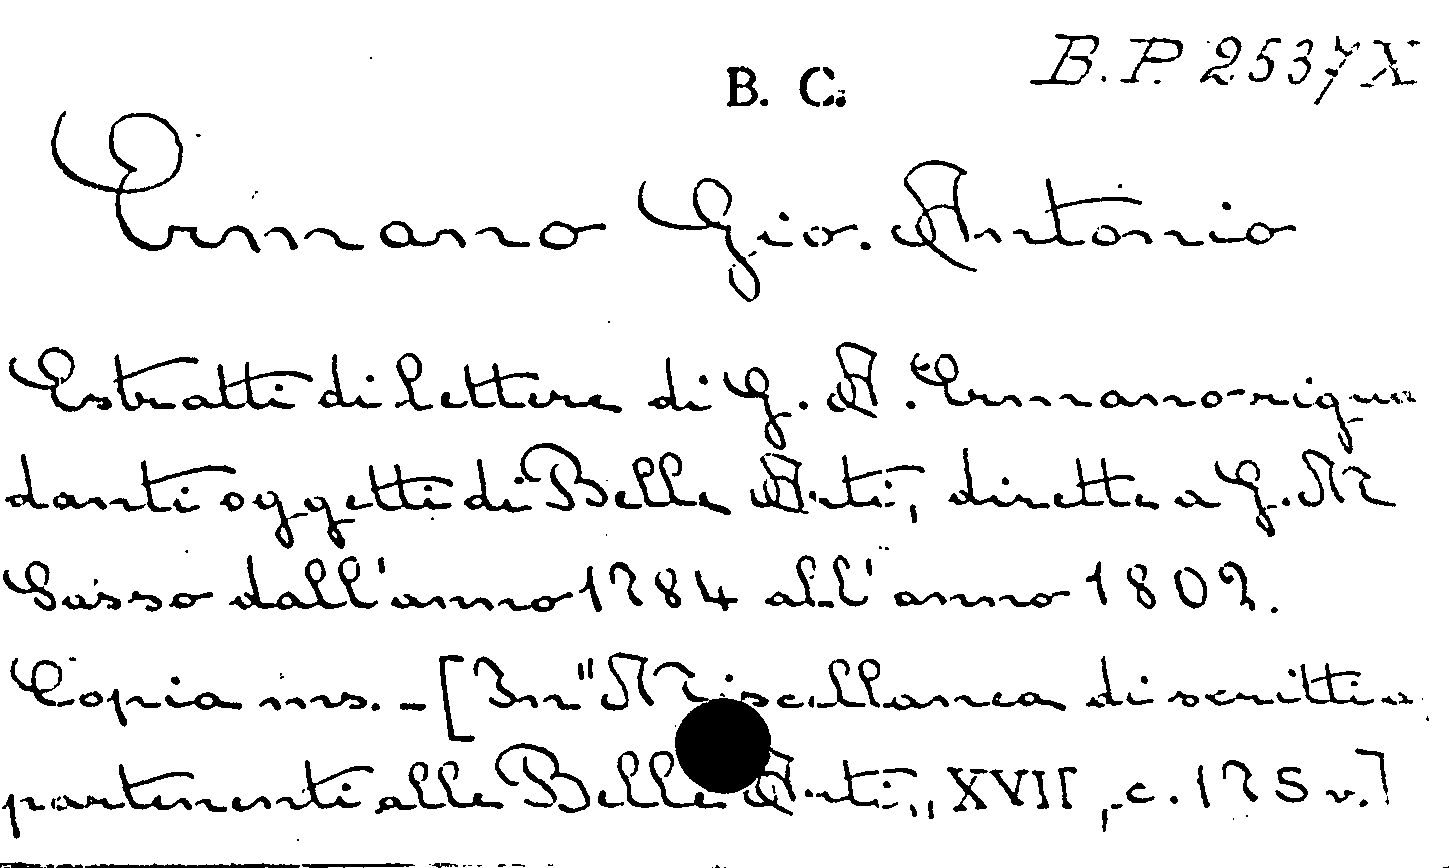 B. C. B. P. 2537 X
Ermano Gio. Antonio
Estratti di lettere di G. A. Ermano rigua
danti oggetti di Belle Arti, dirette a G. M
Sasso dall'anno 1784 all'anno 1802.
Copia ms. - [In "Miscellanea di scritti a
partenenti alle Belle Arti", XVII, c. 175 v.]